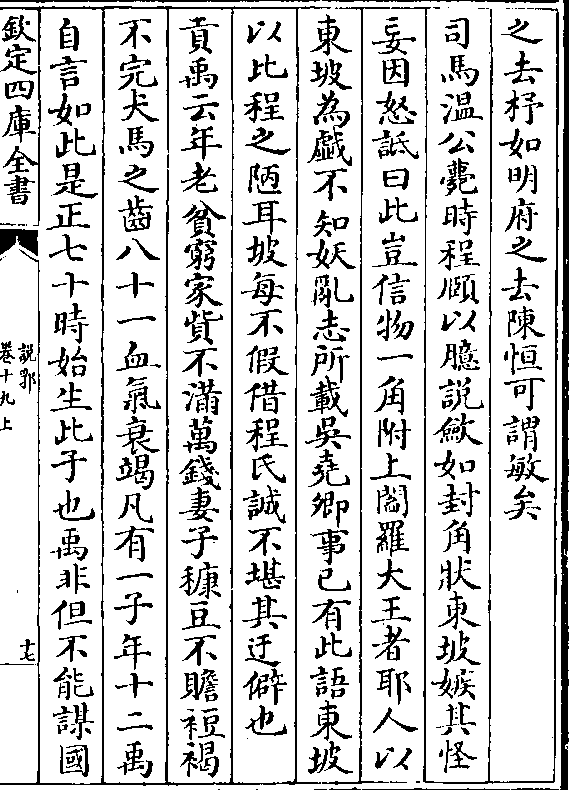 之去杼如明府之去陳恒可謂敏矣
司馬溫公薨時程頤以臆說歛如封角狀東坡嫉其怪
妄因怒詆曰此豈信物一角附上閻羅大王者耶人以
東坡為戲不知妖亂志所載吳堯卿事已有此語東坡
以比程之陋耳坡每不假借程氏誠不堪其迂僻也
貢禹云年老貧窮家貲不滿萬錢妻子穅豆不贍裋褐
不完犬馬之齒八十一血氣衰竭凡有一子年十二禹
自言如此是正七十時始生此子也禹非但不能謀國
欽定四庫全書
說郛
卷十九上
十七